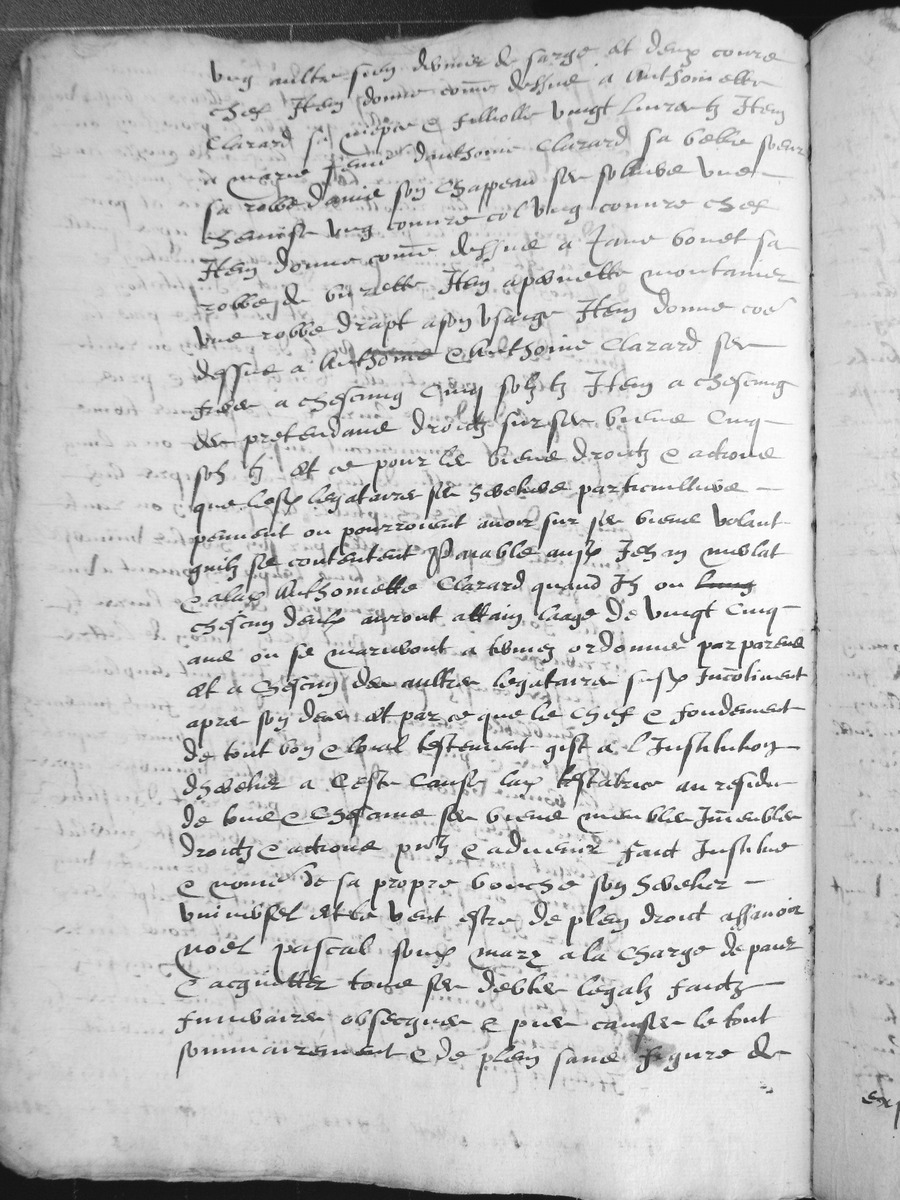 ung aultre sien devnier de sarge et deux couvre
chef Item donne come dessus a Anthoinette
Clarard sa niepce & fillolle vingt livres tz Item
a marie femme danthoine Clarard sa belle soeur
sa robbe damie son chapeau ses soliers une
chemise ung couvre col ung couvre chef
Item donne come dessus a Jane bonet sa
robbe de burette Item a pernette montanier
une robbe drapt a son usaige Item donne coe
dessus a Anthoine & Anthoine Clarard ses
freres a chescung Cinq solz tz Item a chescung
des pretendans droictz sur ses biens Cinq
solz tz et ce pour les biens droictz & actions
que lesd legataires ses heritiers particulliers
peuvent ou pourroient avoir sur ses biens volant
quilz se contentent Paiable ausd Jehan merlat
& a lad Anthoinette Clarard quand Ilz ou
chescun deulx auront attain laage de vingt Cinq
ans ou se mariront a termes ordonnes par parens
et a chescun des aultres legataires susd Incontinent
apres son deces et par ce que le chef & fondement
de tout bon & loial testement gist a l'Institution
dheritier a Ceste Cause lad testatrice au residu
de tous & Chescuns ses biens meubles Immeubles
droictz & actions pntz & advenir faict Institue
& nome de sa propre bouche son heritier
universel et le veut estre de plein droict assavoir
noel pascal sond mary a la charge de paier
& acquitter tous ses debtes legatz faictz
funeraires obseques & pies causes le tout
sommairement & de plein sans figure de